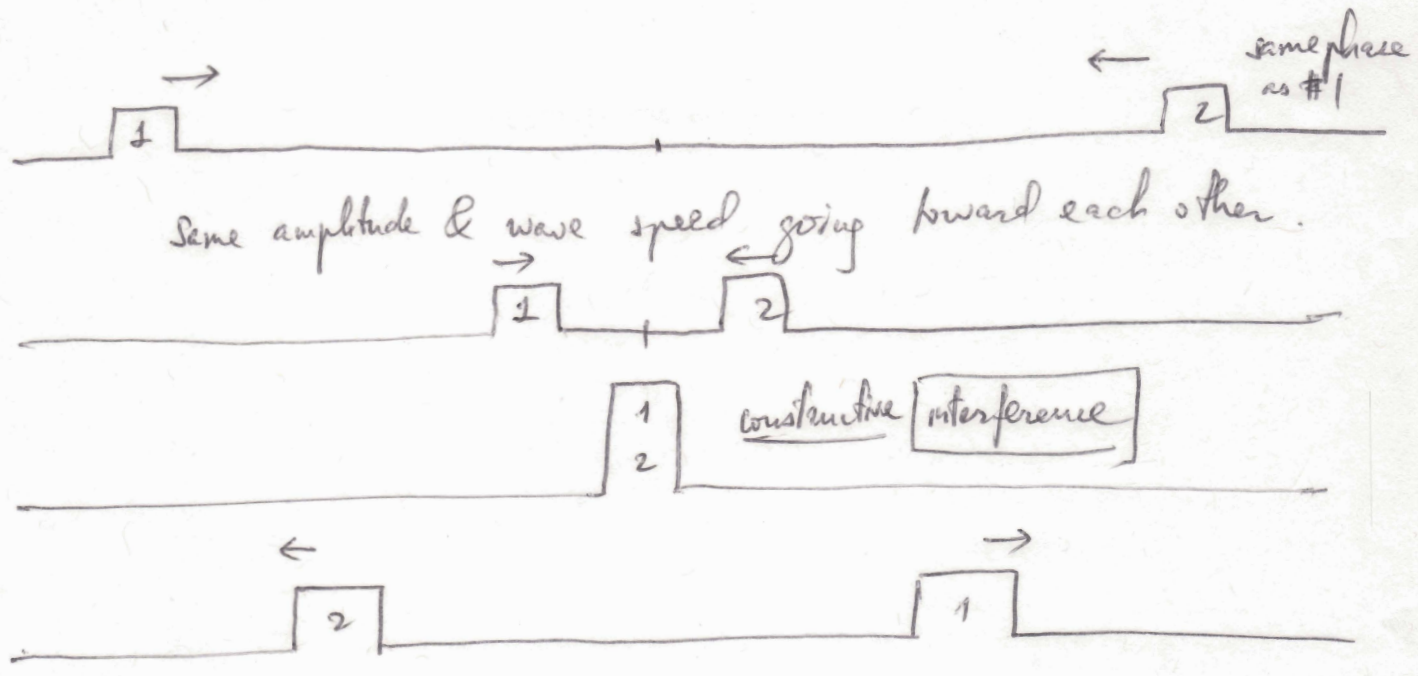 same phase
as #1
1
2
Same amplitude & wave speed going toward each other.
1
2
1
2
constructive interference
2
1